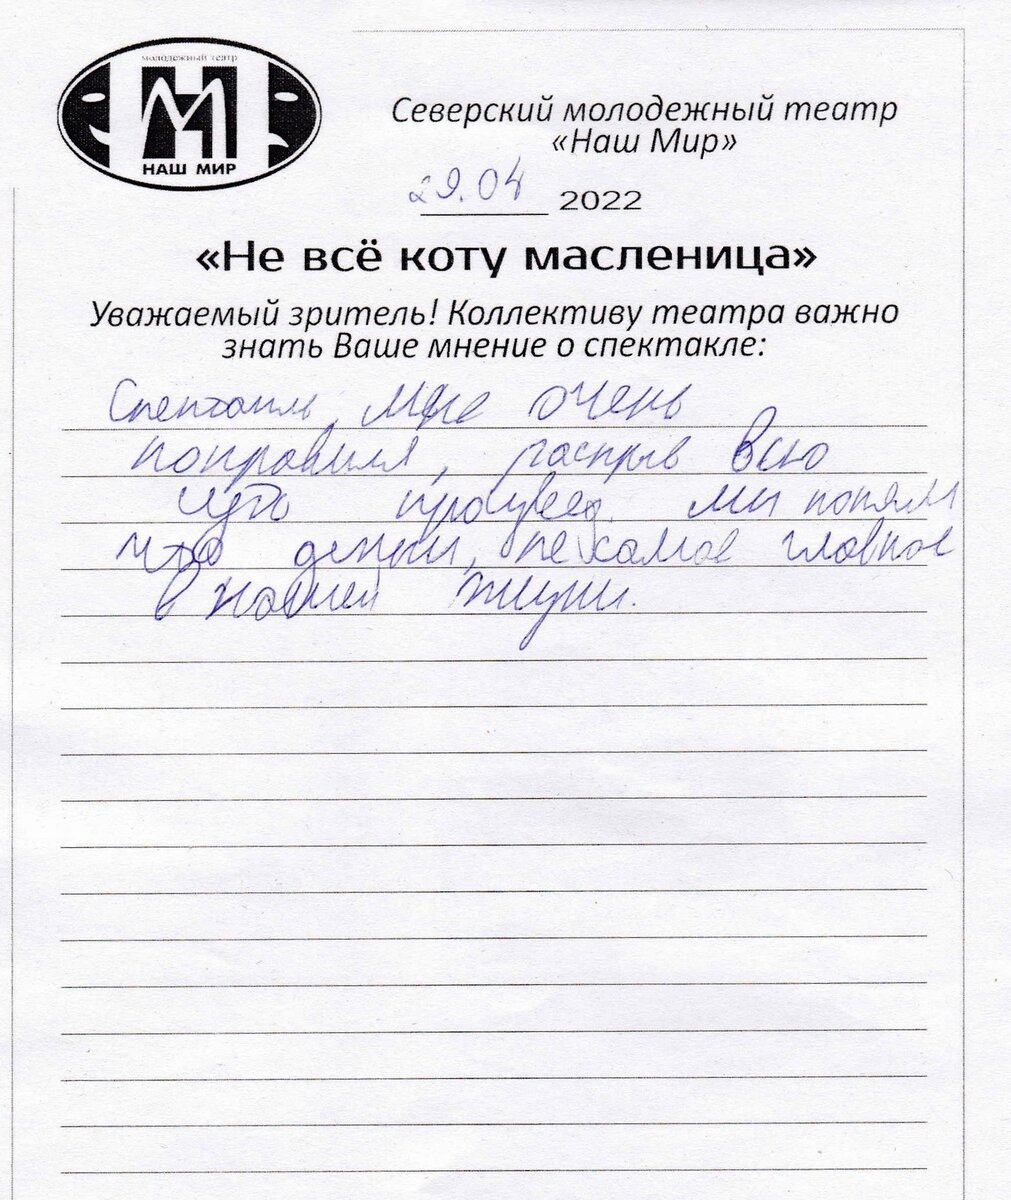 молодежный театр
НАШ МИР
Северский молодежный театр
«Наш Мир»
29.04 2022
«Не всё коту масленица»
Уважаемый зритель! Коллективу театра важно
знать Ваше мнение о спектакле:
Спектакль мне очень
понравился, раскрыв всю
мы поняли
что деньги, не самое главное
в нашей жизни.